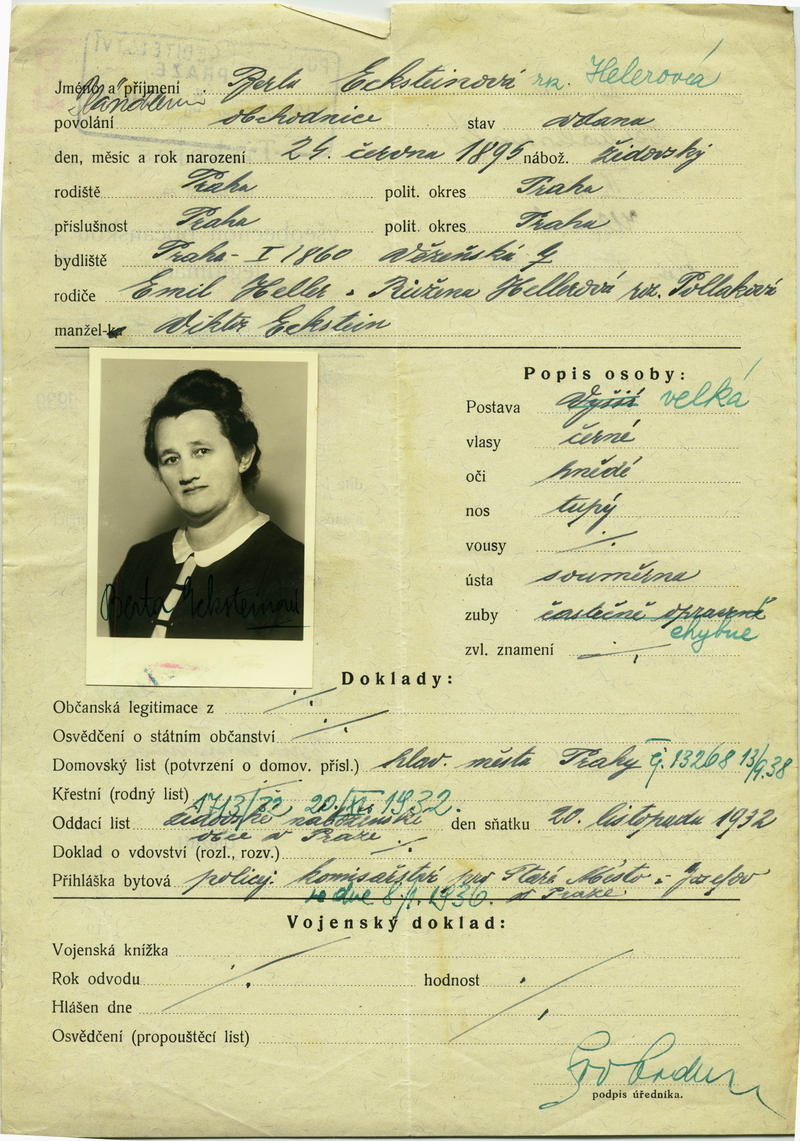 Jméno a příjmení Berta Ecksteinová roz. Helerová
povolání obchodnice stav vdana
den, měsíc a rok narození 24. června 1895 nábož. židovský
rodiště Praha polit. okres Praha
příslušnost Praha polit. okres Praha
bydliště Praha - I 1860 Vězeňská
rodiče Emil Heller a Růžena Hellerová roz. Pollaková
manžel-ka Viktor Eckstein
Popis osoby:
Postava Vyšší velká
vlasy černé
oči hnědé
nos tupý
vousy ./.
ústa souměrna
zuby částečně opravené
chybné
zvl. znamení ./.
Berta Ecksteinová
Doklady:
Občanská legitimace z ./.
Osvědčení o státním občanství ./.
Domovský list (potvrzení o domov. přísl.) hlav. města Prahy č. 13268 13/9.38
Křestní (rodný list)
1713/32 20/XI. 1932.
Oddací list židovské náboženské den sňatku 20. listopadu 1932
obce v Praze
Doklad o vdovství (rozl., rozv.) ./.
Přihláška bytová policej. komisařství pro Staré Město a Josefov
ze dne 8/1. 1936. v Praze.
Vojenský doklad:
Vojenská knížka
Rok odvodu ./. hodnost ./.
Hlášen dne
Osvědčení (propouštěcí list)
Svoboda
podpis úředníka.